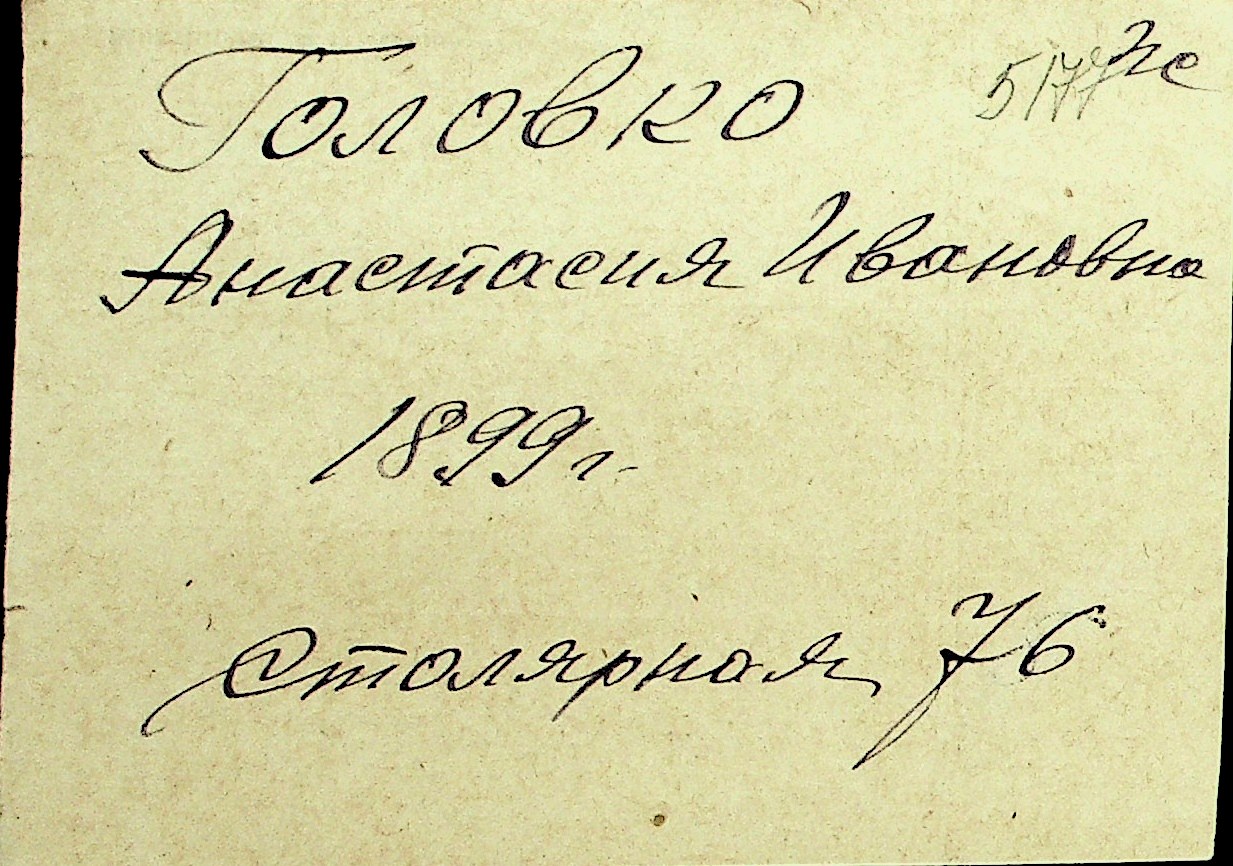 Головко 5177
Анастасия Ивановна
1899 г
Столярная 76